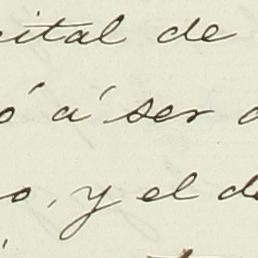 cital de
ó á ser
o, y el de